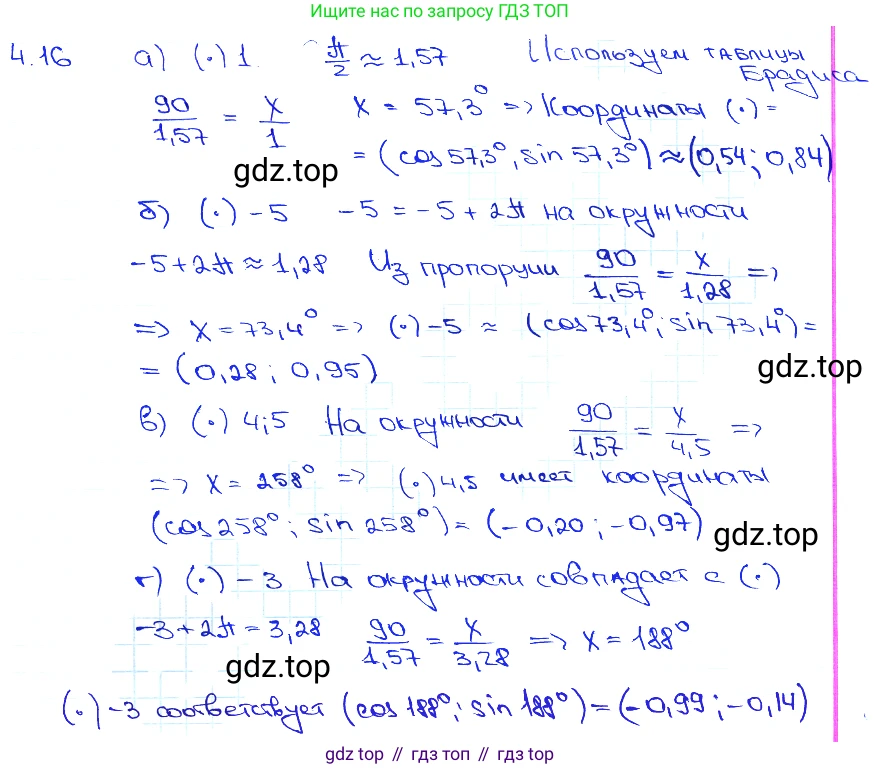 Ищите нас по запросу ГДЗ ТОП
4.16 а) (·) 1 π/2 ≈ 1,57 Используем таблицы Брадиса
90/1,57 = x/1 x = 57,3° => Координаты (·) =
= (cos 57,3°, sin 57,3°) ≈ (0,54; 0,84)
gdz.top
б) (·) -5 -5 = -5 + 2π на окружности
-5 + 2π ≈ 1,28 Из пропорции 90/1,57 = x/1,28 =>
=> x = 73,4° => (·) -5 ≈ (cos 73,4°; sin 73,4°) =
= (0,28; 0,95)
gdz.top
в) (·) 4,5 На окружности 90/1,57 = x/4,5 =>
=> x = 258° => (·) 4,5 имеет координаты
(cos 258°; sin 258°) = (-0,20; -0,97)
gdz.top
г) (·) -3 На окружности совпадает с (·)
-3 + 2π = 3,28 90/1,57 = x/3,28 => x = 188°
gdz.top
(·) -3 соответствует (cos 188°; sin 188°) = (-0,99; -0,14)
gdz top // гдз топ // gdz top // гдз топ